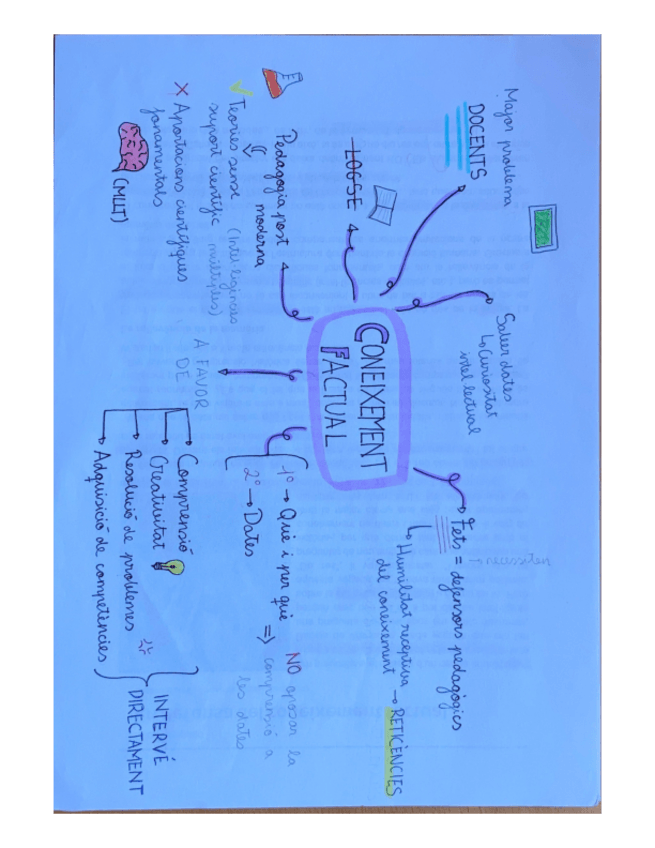 CONEIXEMENT
FACTUAL
Major problema
DOCENTS
LOGSE
Saber dates
↳ Curiositat
intel·lectual
Fets = defensors pedagògics
↑ necessiten
↳ Humilitat receptiva
del coneixement → RETICÈNCIES
1º → Què i per què
2º → Dates
⇒ NO oposar la
comprensió a
les dates
A FAVOR
DE
Comprensió
Creativitat
Resolució de problemes
Adquisició de competències
INTERVÉ
DIRECTAMENT
Pedagogia post
moderna
Teories sense
suport científic
(Intel·ligències
múltiples)
X Aportacions científiques
fonamentals
(MLLT)